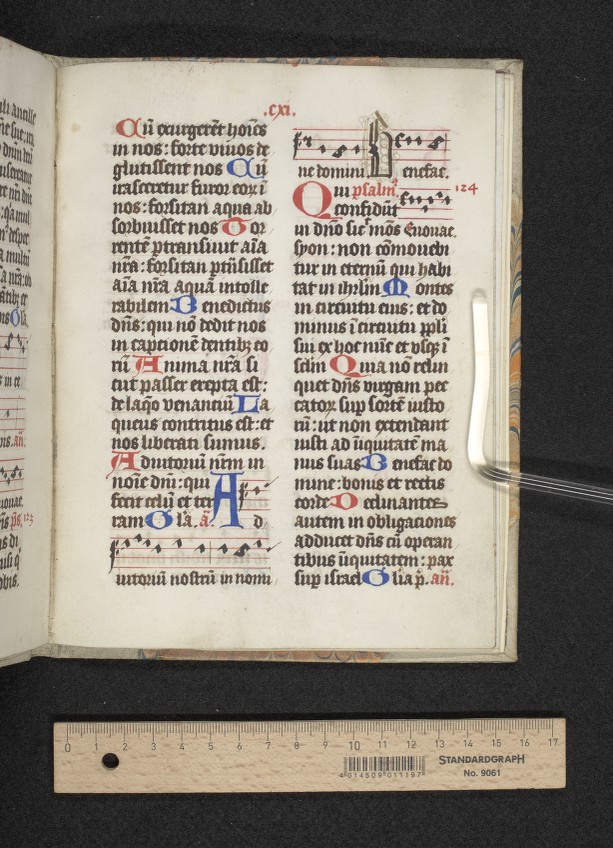 .cxi.
Cū exurgerēt hoīes
in nos : forte viuos de
glutissent nos Cū
irasceretur furor eoꝝ ī
nos : forsitan aqua ab
sorbuisset nos Tor
rentē ꝑtransiuit aīa
nr̄a : forsitan ꝑtrāsisset
aīa nr̄a aquā intolle
rabilem Benedictus
dn̄s : qui nō dedit nos
in captionē dentibꝫ eo
rū Anima nr̄a si
cut passer erepta est :
de laq̄o venanciū La
queus contritus est : et
nos liberati sumus.
Adiutoriū nr̄m in
noīe dni : qui
fecit celū et ter
ram Glā. ā A d
iutoriū nostrū in nomi
ne domini. Benefac.
Qui psalm⁹. 124
confidūt
in dn̄o sic̄ mōs Euouae.
syon : non cōmouebi
tur in eternū qui habi
tat in ihrlm̄ Montes
in circuitu eius : et do
minus ī circuitu ppli
sui ex hoc nūc et vsqꝫ ī
sclm̄ Quia nō relin
quet dn̄s virgam pec
catoꝝ suꝑ sortē iusto
rū : ut non extendant
iusti ad īiquitatē ma
nus suas Benefac do
mine : bonis et rectis
corde Declinantes
autem in obligaciones
adducet dn̄s cū operan
tibus īiquitatem : pax
suꝑ israel Glia p. an̄.
ps. 123
STANDARDGRAPH
No. 9061
4 014509 011197
0 1 2 3 4 5 6 7 8 9 10 11 12 13 14 15 16 17